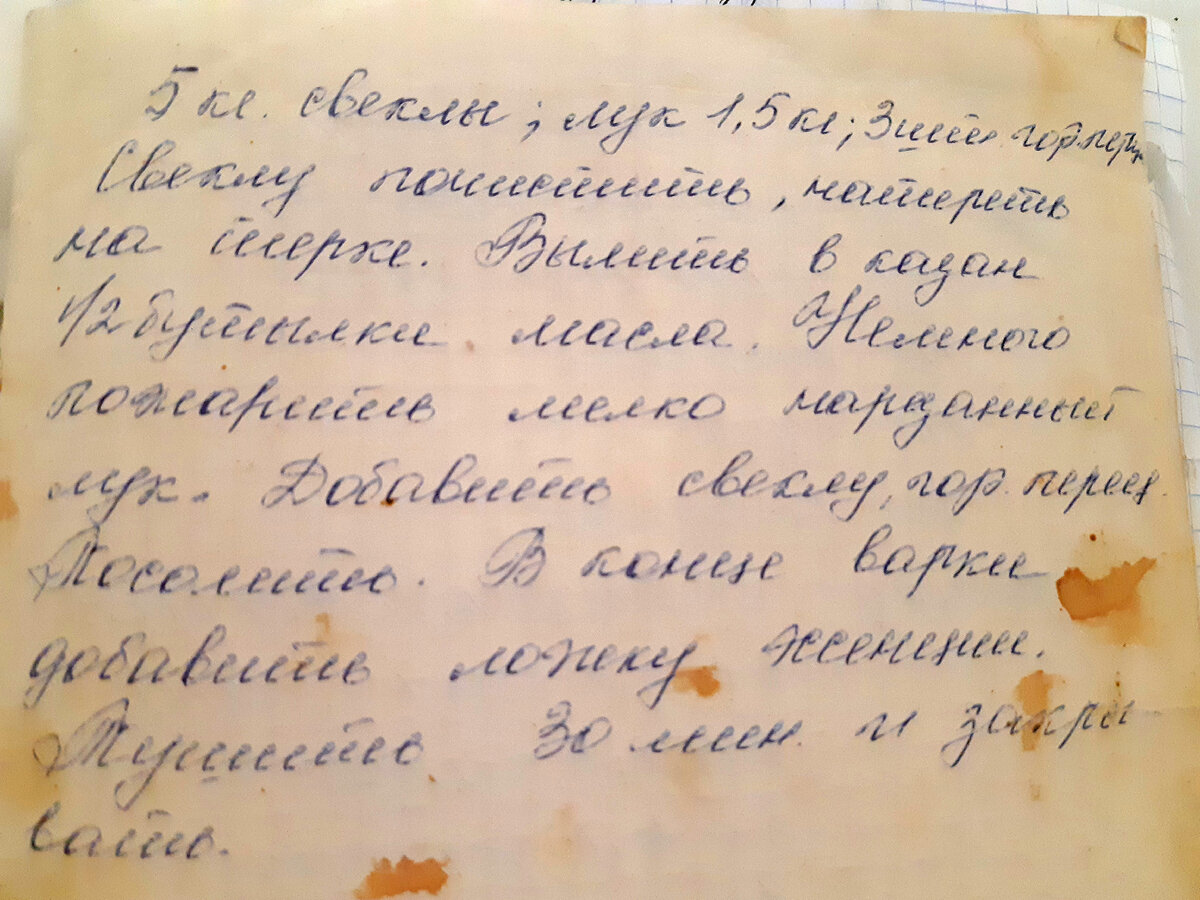 5 кг. свеклы; лук 1,5 кг; 3 шт. гор. перц
Свеклу почистить, натереть
на терке. Вылить в казан
1/2 бутылки масла. Немного
пожарить мелко нарзанный
лук. Добавить свеклу, гор. перец.
Посолить. В конце варки
добавить ложку эссенции.
Тушить 30 мин. и закры
вать.